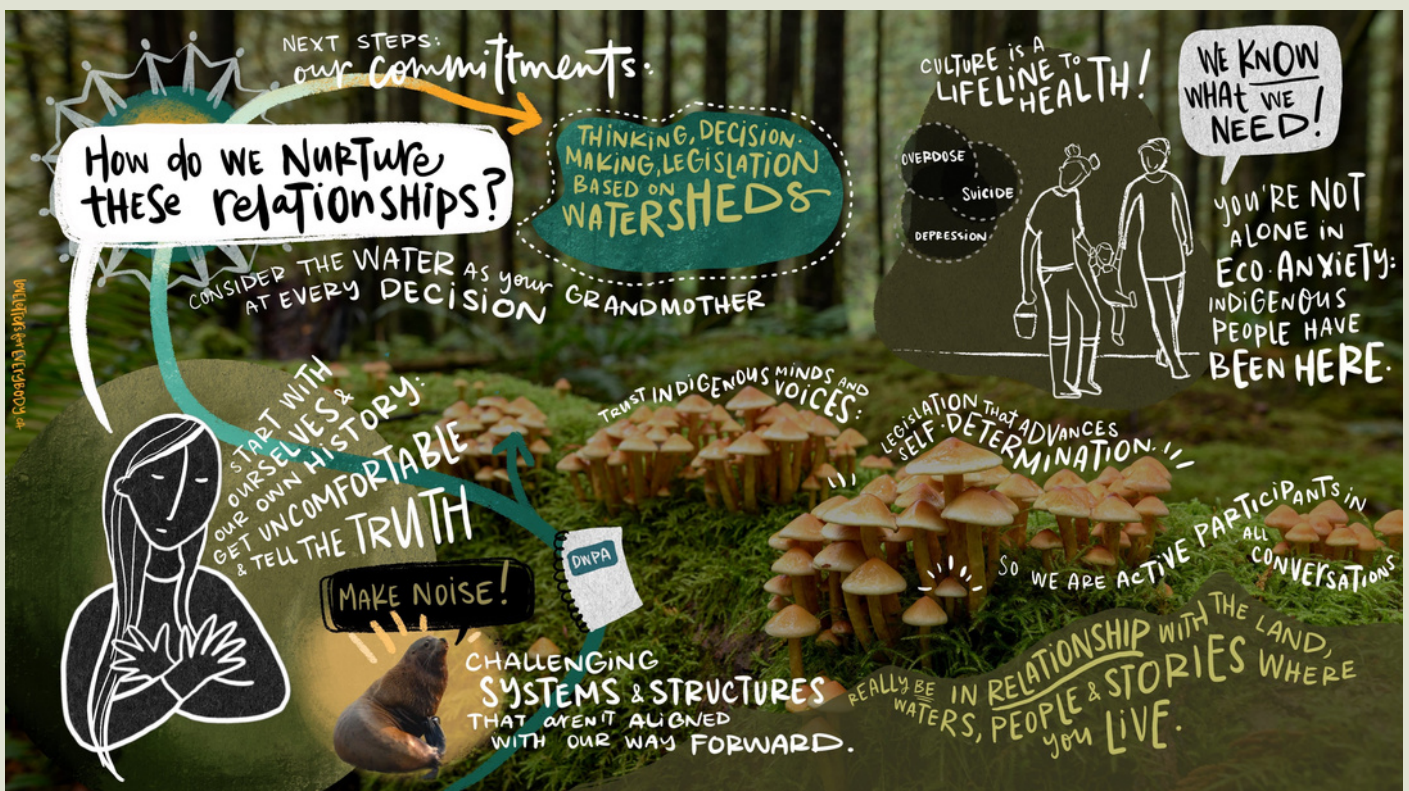 NEXT STEPS:
our committments:
HOW do WE NURTURE
tHESe relationships?
THINKING, DECISION-
MAKING, LEGISLATION
BASED ON
WATERSHEDS
CONSIDER THE WATER AS your GRANDMOTHER
AT EVERY DECISION
CULTURE IS A
LIFELINE TO
HEALTH!
OVERDOSE
SUICIDE
DEPRESSION
WE KNOW
WHAt WE
NEED!
you'RE NOT
ALONE IN
ECO-ANXiETY:
INDiGENOUS
PEOPLE HAVE
BEEN HERE.
START WITH
OURSELVES &
OUR OWN HISTORY:
GET UNCOMFORTABLE
& TELL THE TRUTH
TRUST INDIGENOUS MINDS AND
VOICES:
LEGISLATION THAT ADVANCES
SELF-DETERMINATION.
SO WE ARE ACTIVE PARTICIPANTS IN
ALL
CONVERSATIONS
DWPA
MAKE NOISE!
CHALLENGING
SYSTEMS & STRUCTURES
THAT AREN'T ALIGNED
WITH OUR WAY FORWARD.
REALLY BE IN RELATIONSHIP WITH THE LAND,
WATERS, PEOPLE & STORIES WHERE
you LIVE.